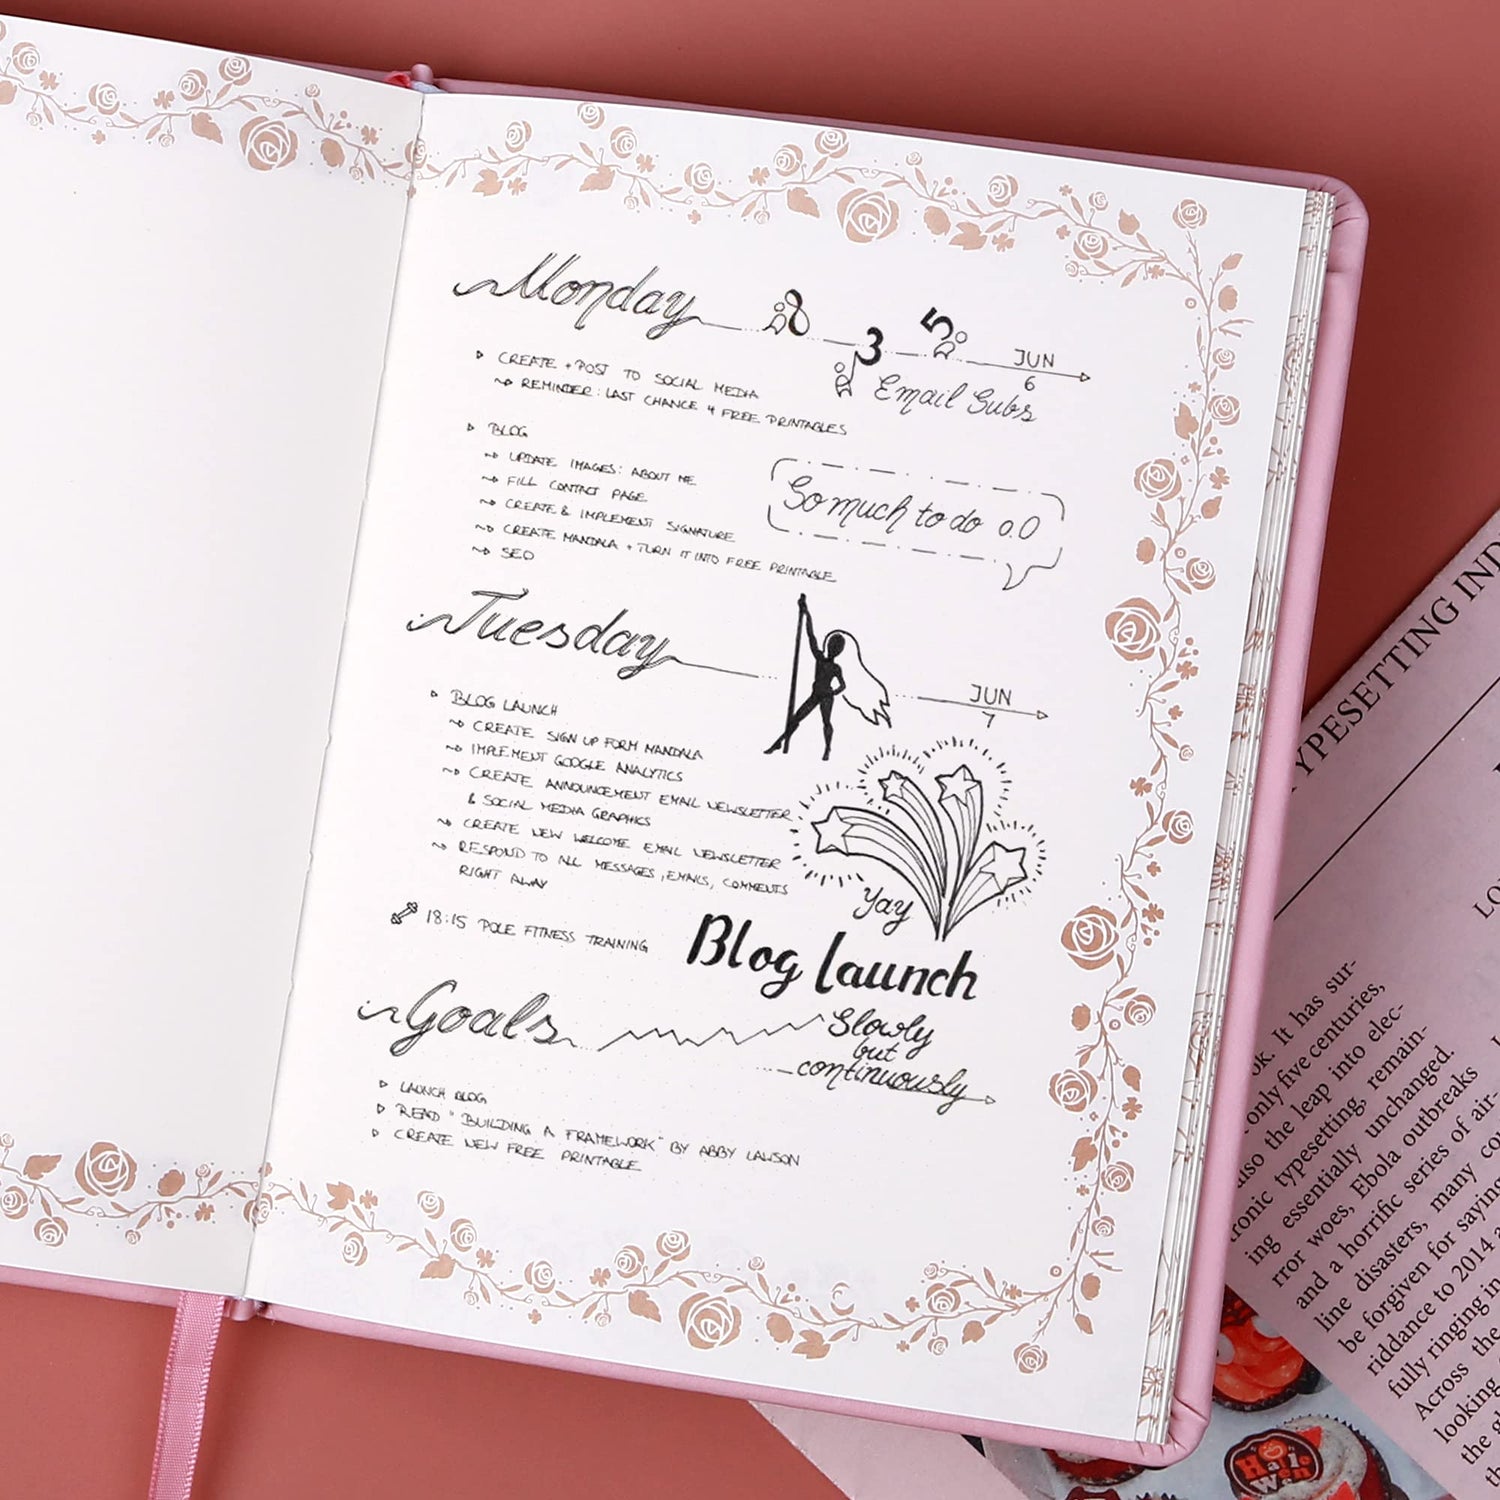 Monday
8 3 5
Email Subs
JUN
6
▷ CREATE + POST TO SOCIAL MEDIA
↝ REMINDER: LAST CHANCE 4 FREE PRINTABLES
▷ BLOG
↝ UPDATE IMAGES: ABOUT ME
↝ FILL CONTACT PAGE
↝ CREATE & IMPLEMENT SIGNATURE
↝ CREATE MANDALA + TURN IT INTO FREE PRINTABLE
↝ SEO
So much to do o.O
Tuesday
JUN
7
▷ BLOG LAUNCH
↝ CREATE SIGN UP FORM MANDALA
↝ IMPLEMENT GOOGLE ANALYTICS
↝ CREATE ANNOUNCEMENT EMAIL NEWSLETTER
& SOCIAL MEDIA GRAPHICS
↝ CREATE NEW WELCOME EMAIL NEWSLETTER
↝ RESPOND TO ALL MESSAGES, EMAILS, COMMENTS
RIGHT AWAY
18:15 POLE FITNESS TRAINING
Yay
Blog launch
Goals
Slowly
but
continuously
▷ LAUNCH BLOG
▷ READ "BUILDING A FRAMEWORK" BY ABBY LAWSON
▷ CREATE NEW FREE PRINTABLE
TYPESETTING IND
LO
ok. It has sur-
only five centuries,
also the leap into elec-
tronic typesetting, remain-
ing essentially unchanged.
rror woes, Ebola outbreaks
and a horrific series of air-
line disasters, many
be forgiven for saying
riddance to 2014
fully ringing in
Across the
looking
the
Hallo
Ween